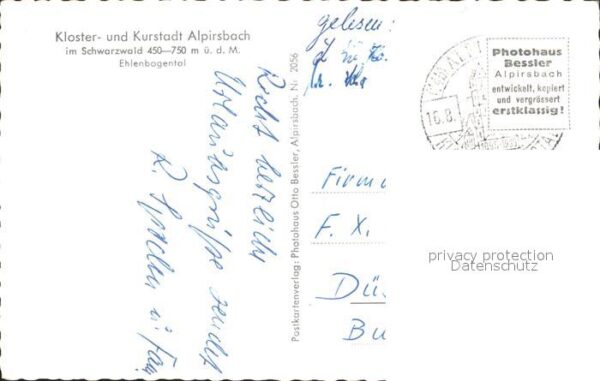 Kloster- und Kurstadt Alpirsbach
im Schwarzwald 450—750 m ü. d. M.
Ehlenbogental
Recht herzliche
Urlaubsgrüße sendet
u. Fam.
Postkartenverlag: Photohaus Otto Bessler, Alpirsbach, Nr. 2056
gelesen:
16.8.
Photohaus
Bessler
Alpirsbach
entwickelt, kopiert
und vergrössert
erstklassig!
Firma
F. X.
Dü
Bu
privacy protection
Datenschutz